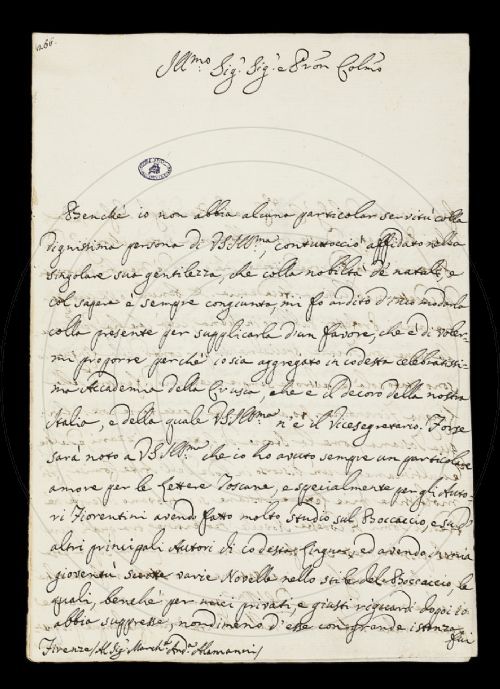 1266.
Ill.mo Sig.r Sig.r e Pron Colmo
Benche io non abbia alcuna particolar servitù colla
dignissima persona di VSIll.ma, contuttociò affidato nella
singolare sua gentilezza, che colla nobiltà de natali, e
col sapere è sempre congiunta, mi fo ardito d'incomodarla
colla presente per supplicarla d'un favore, che è di voler-
mi proporre perche io sia aggregato in codesta celebratissi-
ma Accademia della Crusca, che è il decoro della nostra
Italia, e della quale VSIll.ma n'è il Vicesegretario. Forse
sarà noto a VSIll.ma che io ho avuto sempre un particolare
amore per le Lettere Toscane, e specialmente per gli Auto-
ri Fiorentini avendo fatto molto studio sul Boccaccio, e su
altri principali Autori di codesta lingua, ed avendo in mia
gioventù scritte varie Novelle nello stile del Boccaccio, le
quali, benche per miei privati e giusti riguardi dopoi io
abbia suppresse, nondimeno d'esse con grande istanza
fui
Firenze/Al Sig.r March.e And.a Alamanni/